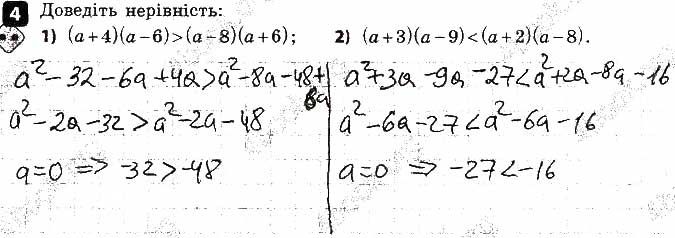 4 Доведіть нерівність:
1) (a+4)(a−6)>(a−8)(a+6);
2) (a+3)(a−9)<(a+2)(a−8).
a²−32−6a+4a>a²−8a−48+
8a
a²−2a−32>a²−2a−48
a=0 => −32>−48
a²+3a−9a−27<a²+2a−8a−16
a²−6a−27<a²−6a−16
a=0 => −27<−16